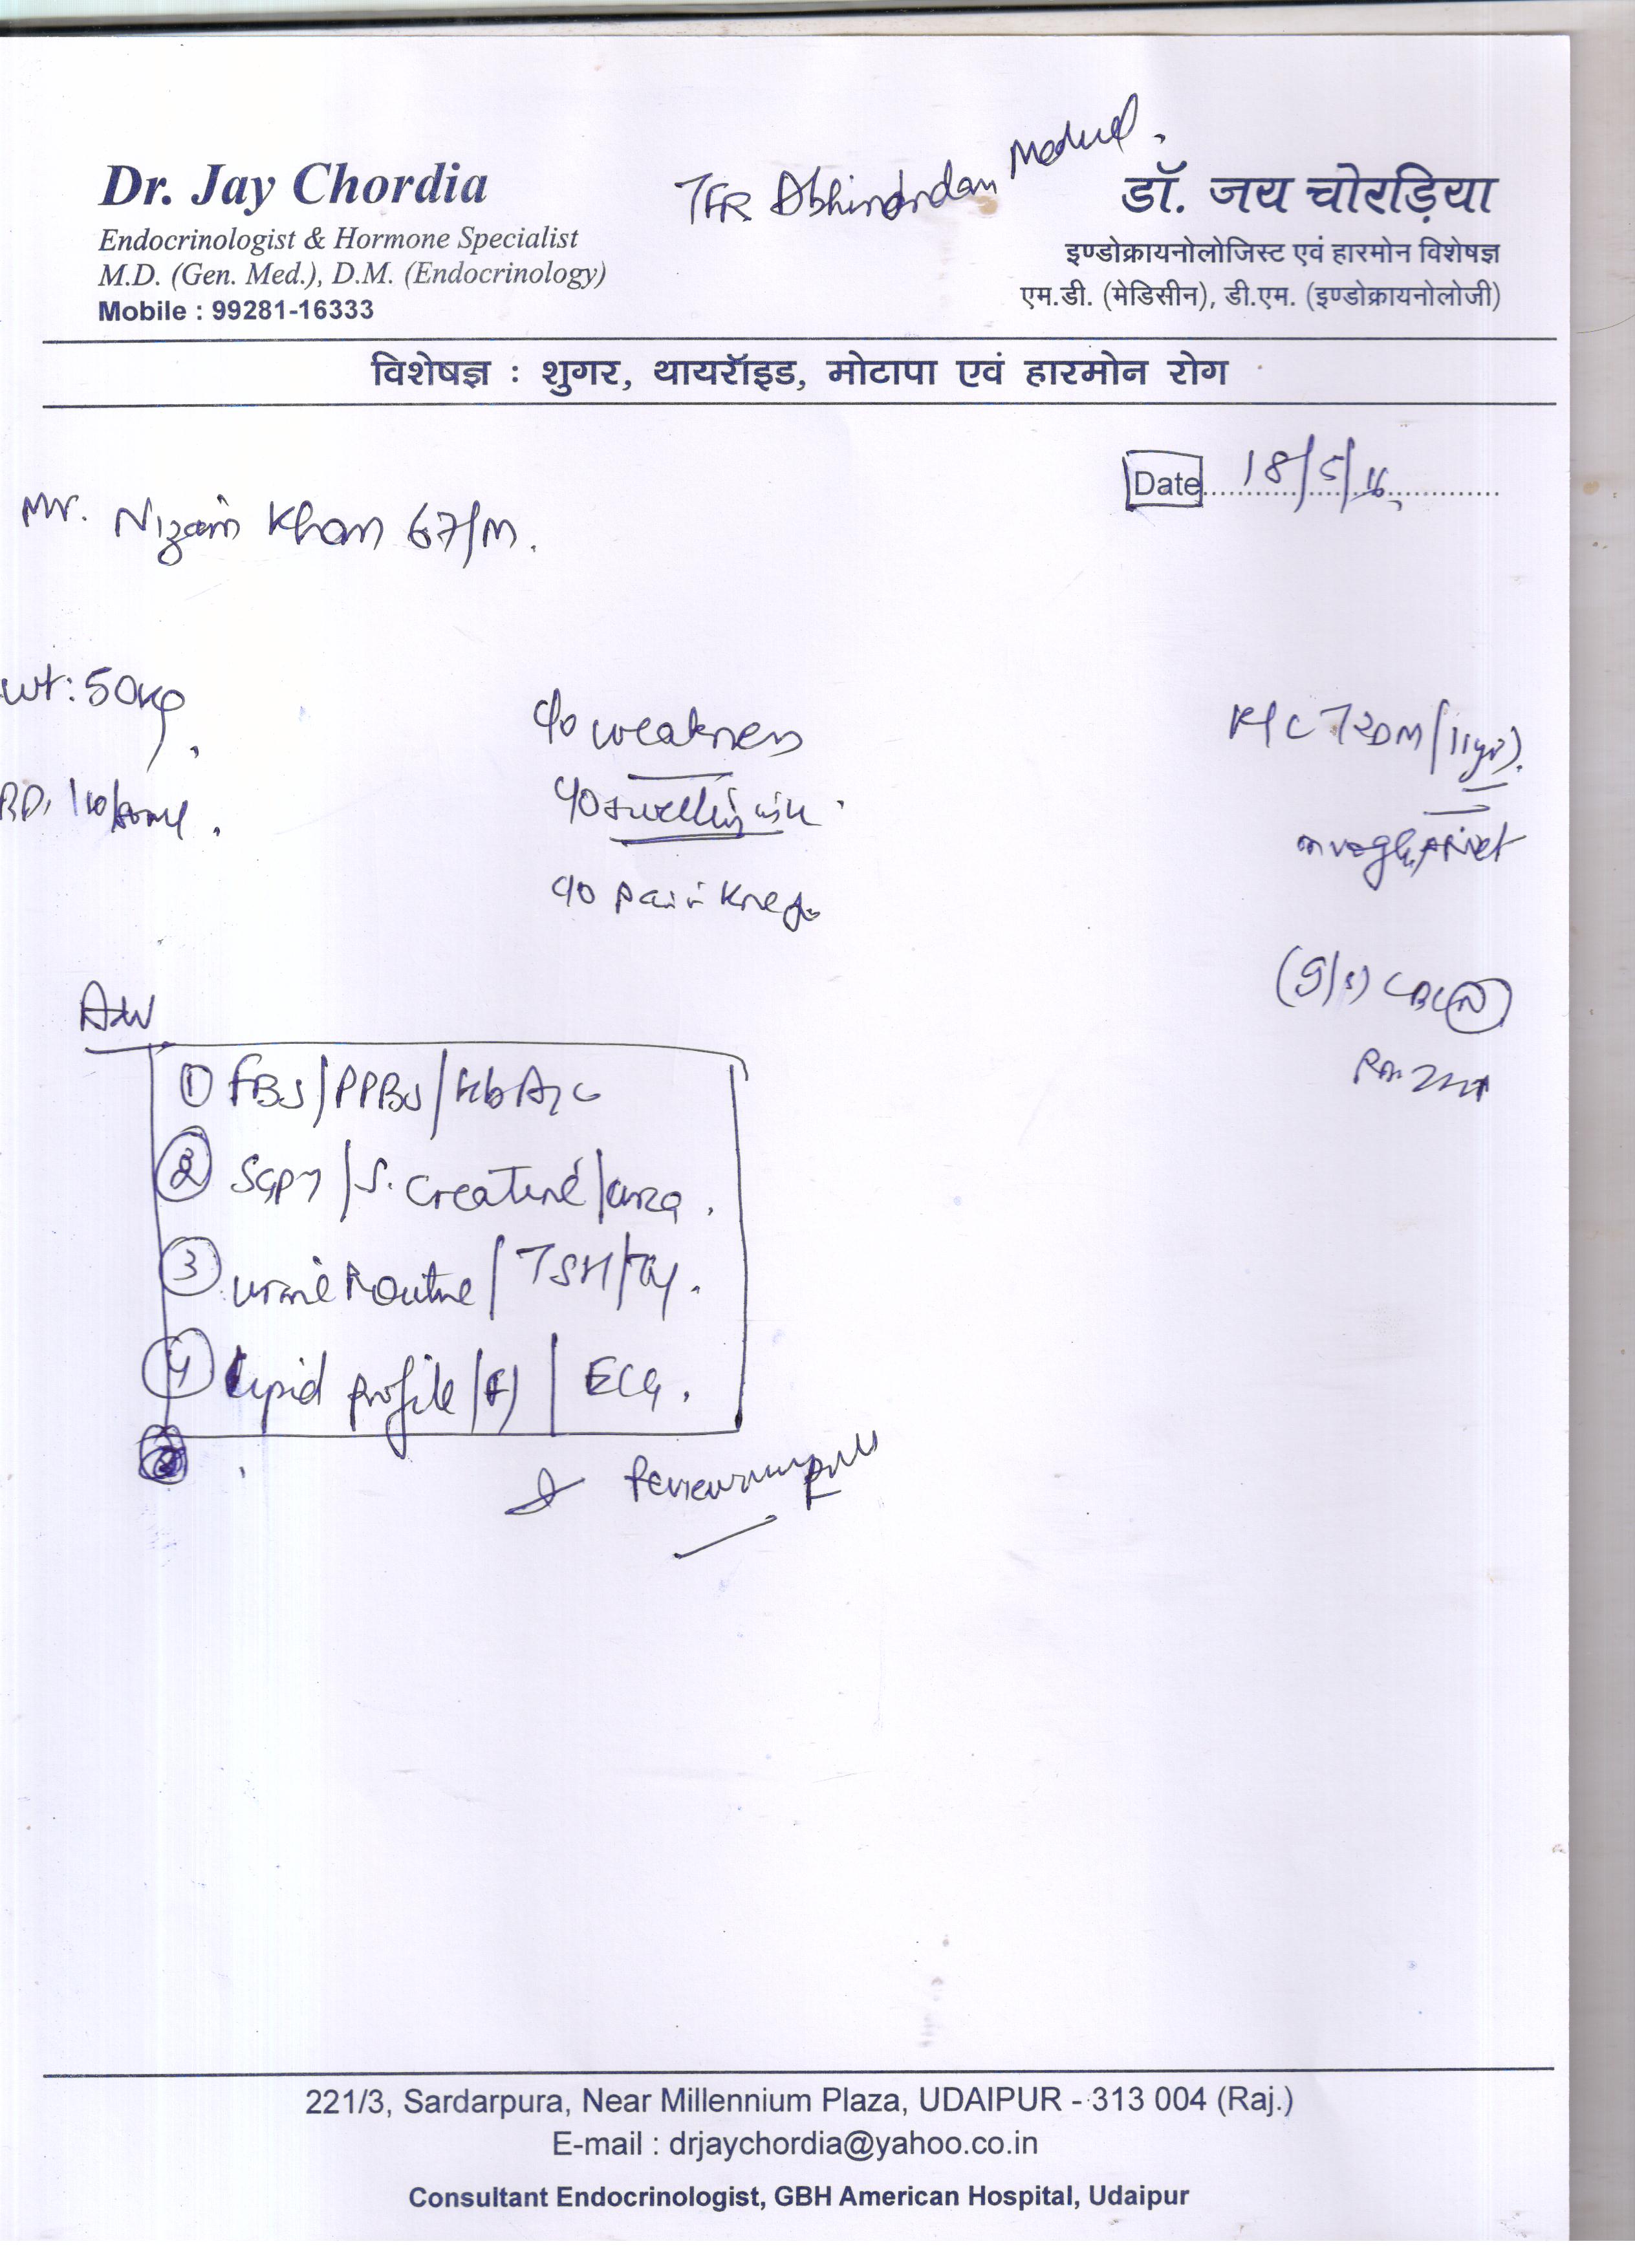 Dr. Jay Chordia
Endocrinologist & Hormone Specialist
M.D. (Gen. Med.), D.M. (Endocrinology)
Mobile : 99281-16333
Abhinandan
डॉ. जय चोरड़िया
इण्डोक्रायनोलोजिस्ट एवं हारमोन विशेषज्ञ
एम.डी. (मेडिसीन), डी.एम. (इण्डोक्रायनोलोजी)
विशेषज्ञ : शुगर, थायरॉइड, मोटापा एवं हारमोन रोग
Date 18/5/16
Mr. Nizam Khan 67/M.
wt: 50kg
c/o weakness
K/C T2DM/11yr).
c/o swelling
c/o pain knee
CBC (N)
Adv
① FBS/PPBS/HbA1c
② SGPT/S. Creatinine/urea.
③ Urine Routine/TSH/T4.
④ Lipid profile/(F)/ECG.
Review
221/3, Sardarpura, Near Millennium Plaza, UDAIPUR - 313 004 (Raj.)
E-mail : drjaychordia@yahoo.co.in
Consultant Endocrinologist, GBH American Hospital, Udaipur